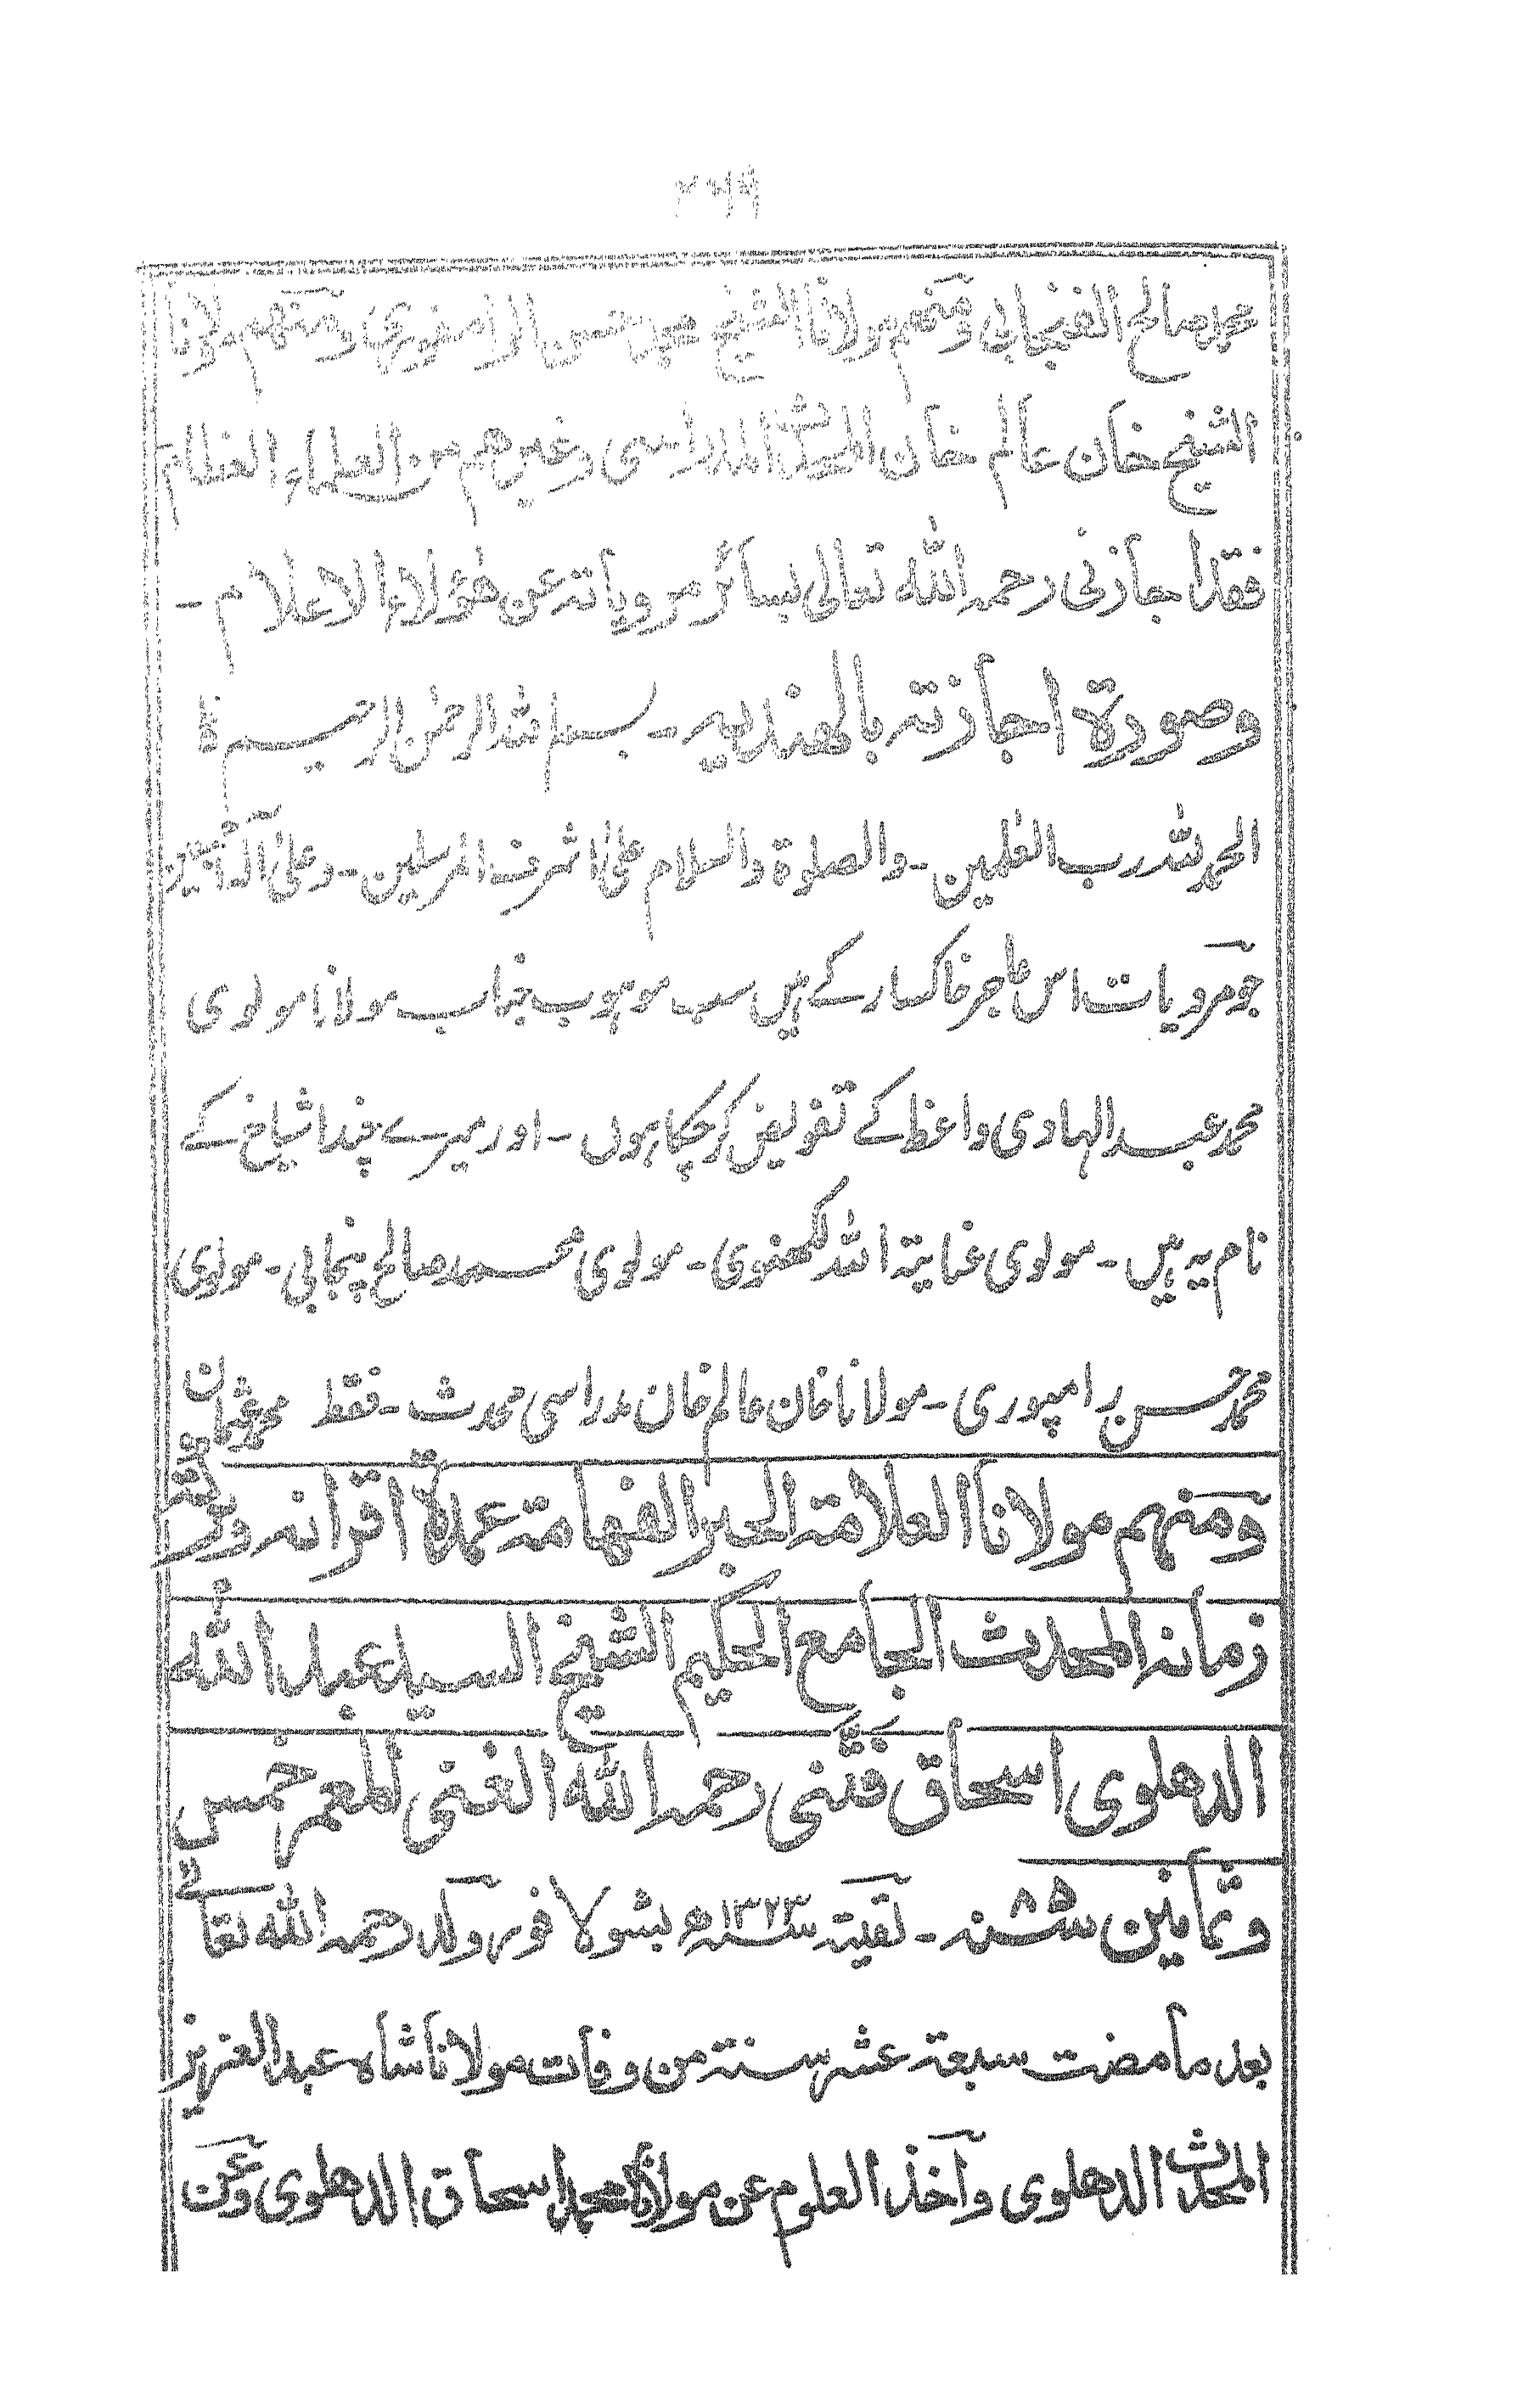 محمد صالح الفنجابي ومنهم مولانا الشيخ محمد حسن الرامفوري ومنهم مولانا
الشيخ خان عالم خان المحدث المدراسى وغيرهم من العلماء العظام
فقد اجازنى رحمه الله تعالى بسائر مروياته عن هؤلاء الاعلام -
وصورة اجازته بالهنديه - بسم الله الرحمن الرحيم ة
الحمد لله رب العلمين - والصلوة والسلام على اشرف المرسلين - وعلى آله
جو مرويات اس عاجز خاکسار کے ہیں سب موہوب جناب مولانا مولوی
محمد عبد الہادی واعظ کے تفویض کر چکا ہوں - اور میرے چند اشیاخ کے
نام یہ ہیں - مولوی عنایة الله لکھنوی - مولوی محمد صالح پنجابی - مولوی
محمد حسن رامپوری - مولانا خان عالم خان مدراسی محدث - فقط محمد عثمان
ومنهم مولانا العلامة الحبر الفهامة عمدة اقرانه
زمانه المحدث الجامع الحكيم الشيخ السيد عبد الله
الدهلوى اسحاق فتنى رحمه الله الغنى المعمر خمس
وثمانين سنه ۸۵ - لقيته سنه ۱۳۲۳ھ بشولا فور ولد رحمه الله تعالى
بعد ما مضت سبعة عشر سنة من وفات مولانا شاه عبد العزيز
المحدث الدهلوى واخذ العلوم عن مولانا محمد اسحاق الدهلوى وعن